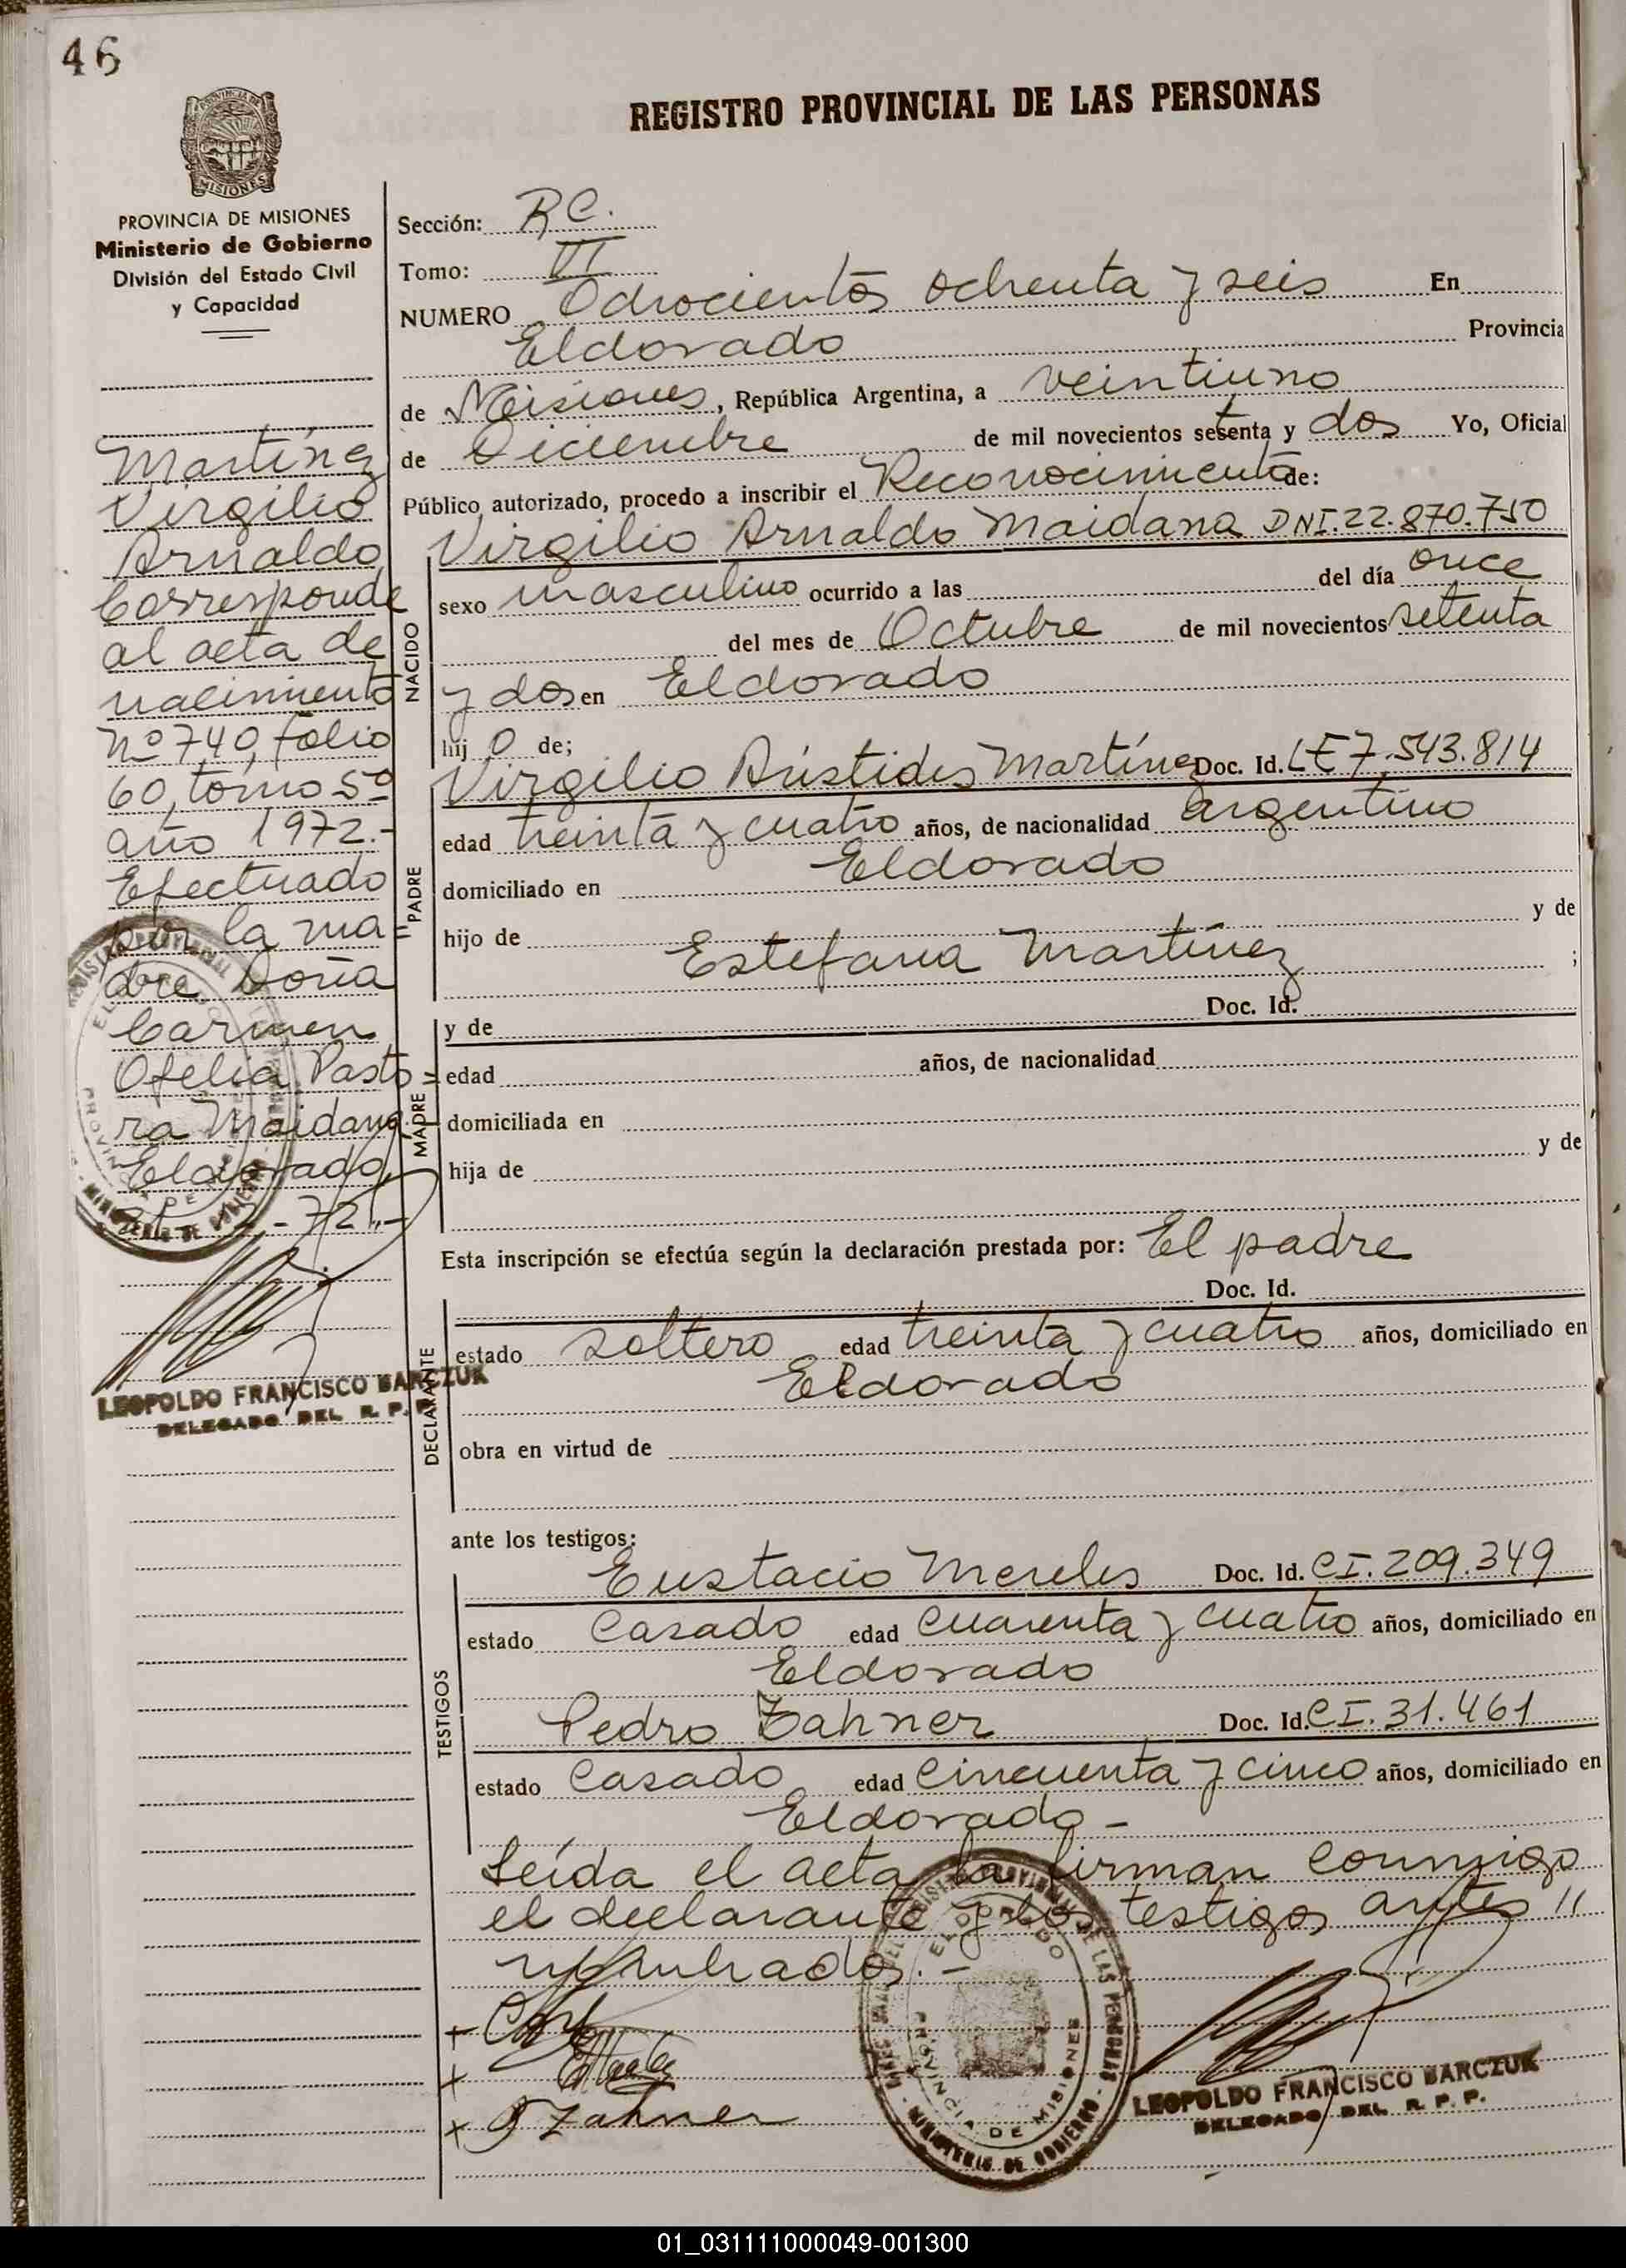 46
REGISTRO PROVINCIAL DE LAS PERSONAS
MISIONES
PROVINCIA DE MISIONES
Ministerio de Gobierno
División del Estado Civil
y Capacidad
Martínez
Virgilio
Arnaldo
Corresponde
al acta de
nacimiento
Nº 740, folio
60, tomo 5º
año 1972.-
Efectuado
por la ma=
dre Doña
Carmen
Ofelia Pasto
ra Maidana.
Eldorado,
-72.-
LEOPOLDO FRANCISCO BARCZUK
DELEGADO DEL R. P. P.
Sección: RC.
Tomo: VI
NUMERO Ochocientos ochenta y seis En
Eldorado Provincia
de Misiones, República Argentina, a veintiuno
de Diciembre de mil novecientos setenta y dos Yo, Oficial
Público autorizado, procedo a inscribir el Reconocimiento de:
NACIDO
Virgilio Arnaldo Maidana DNI.22.870.750
sexo masculino ocurrido a las del día once
del mes de Octubre de mil novecientos setenta
y dos en Eldorado
hij o de;
PADRE
Virgilio Arístides Martínez Doc. Id. LE 7.543.814
edad treinta y cuatro años, de nacionalidad argentino
domiciliado en Eldorado
hijo de y de
Estefana Martínez ;
MADRE
y de Doc. Id.
edad años, de nacionalidad
domiciliada en
hija de y de
Esta inscripción se efectúa según la declaración prestada por: El padre
DECLARANTE
Doc. Id.
estado soltero edad treinta y cuatro años, domiciliado en
Eldorado
obra en virtud de
ante los testigos:
TESTIGOS
Eustacio Mereles Doc. Id. CI.209.349
estado Casado edad cuarenta y cuatro años, domiciliado en
Eldorado
Pedro Zahner Doc. Id. CI.31.461
estado Casado edad cincuenta y cinco años, domiciliado en
Eldorado -
Leída el acta la firman conmigo
el declarante y los testigos antes "
nombrados. -
REGISTRO PROVINCIAL DE LAS PERSONAS
MINISTERIO DE GOBIERNO
ELDORADO
PROVINCIA DE MISIONES
Zahner
LEOPOLDO FRANCISCO BARCZUK
DELEGADO DEL R. P. P.
01_031111000049-001300